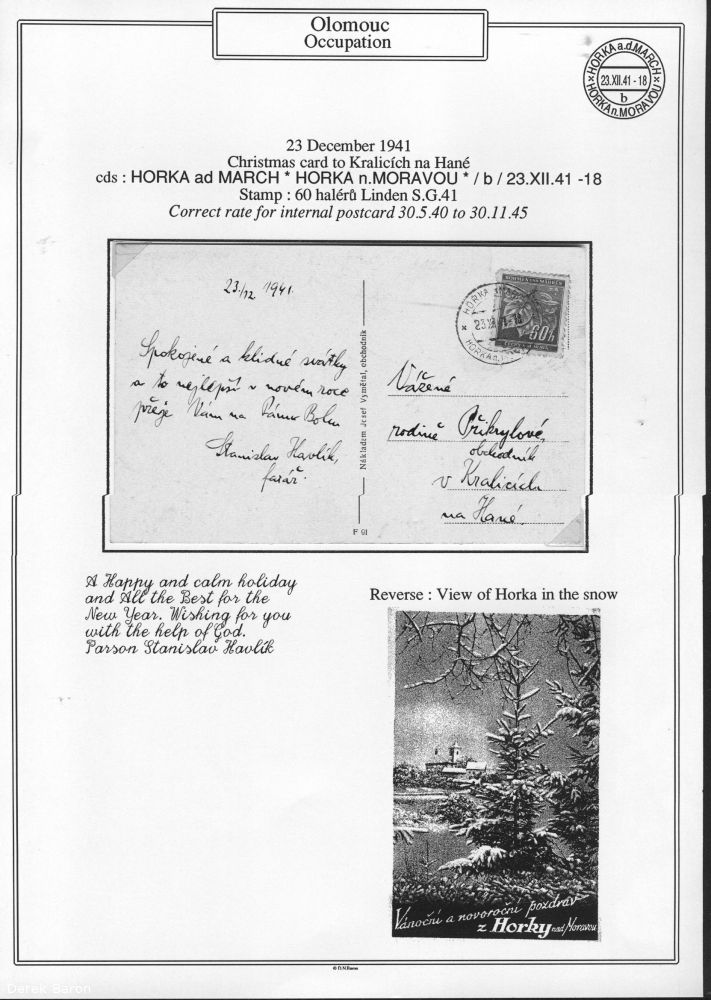 Olomouc
Occupation
HORKA a.d.MARCH
23.XII.41 - 18
b
HORKA n.MORAVOU
23 December 1941
Christmas card to Kralicích na Hané
cds : HORKA ad MARCH * HORKA n.MORAVOU * / b / 23.XII.41 -18
Stamp : 60 halérů Linden S.G.41
Correct rate for internal postcard 30.5.40 to 30.11.45
23./12 1941.
Spokojené a klidné svátky
a to nejlepší v novém roce
přeje Vám na Pánu Bohu
Stanislav Havlík,
farář.
Nákladem Josef Vymětal, obchodník
F 91
HORKA
HORKA n.
60h
Vážené
rodině Přikrylové,
obchodník
v Kralicích
na Hané.
A Happy and calm holiday
and All the Best for the
New Year. Wishing for you
with the help of God.
Parson Stanislav Havlík
Reverse : View of Horka in the snow
Vánoční a novoroční pozdrav
z Horky nad Moravou
© D.N.Baron
Derek Baron